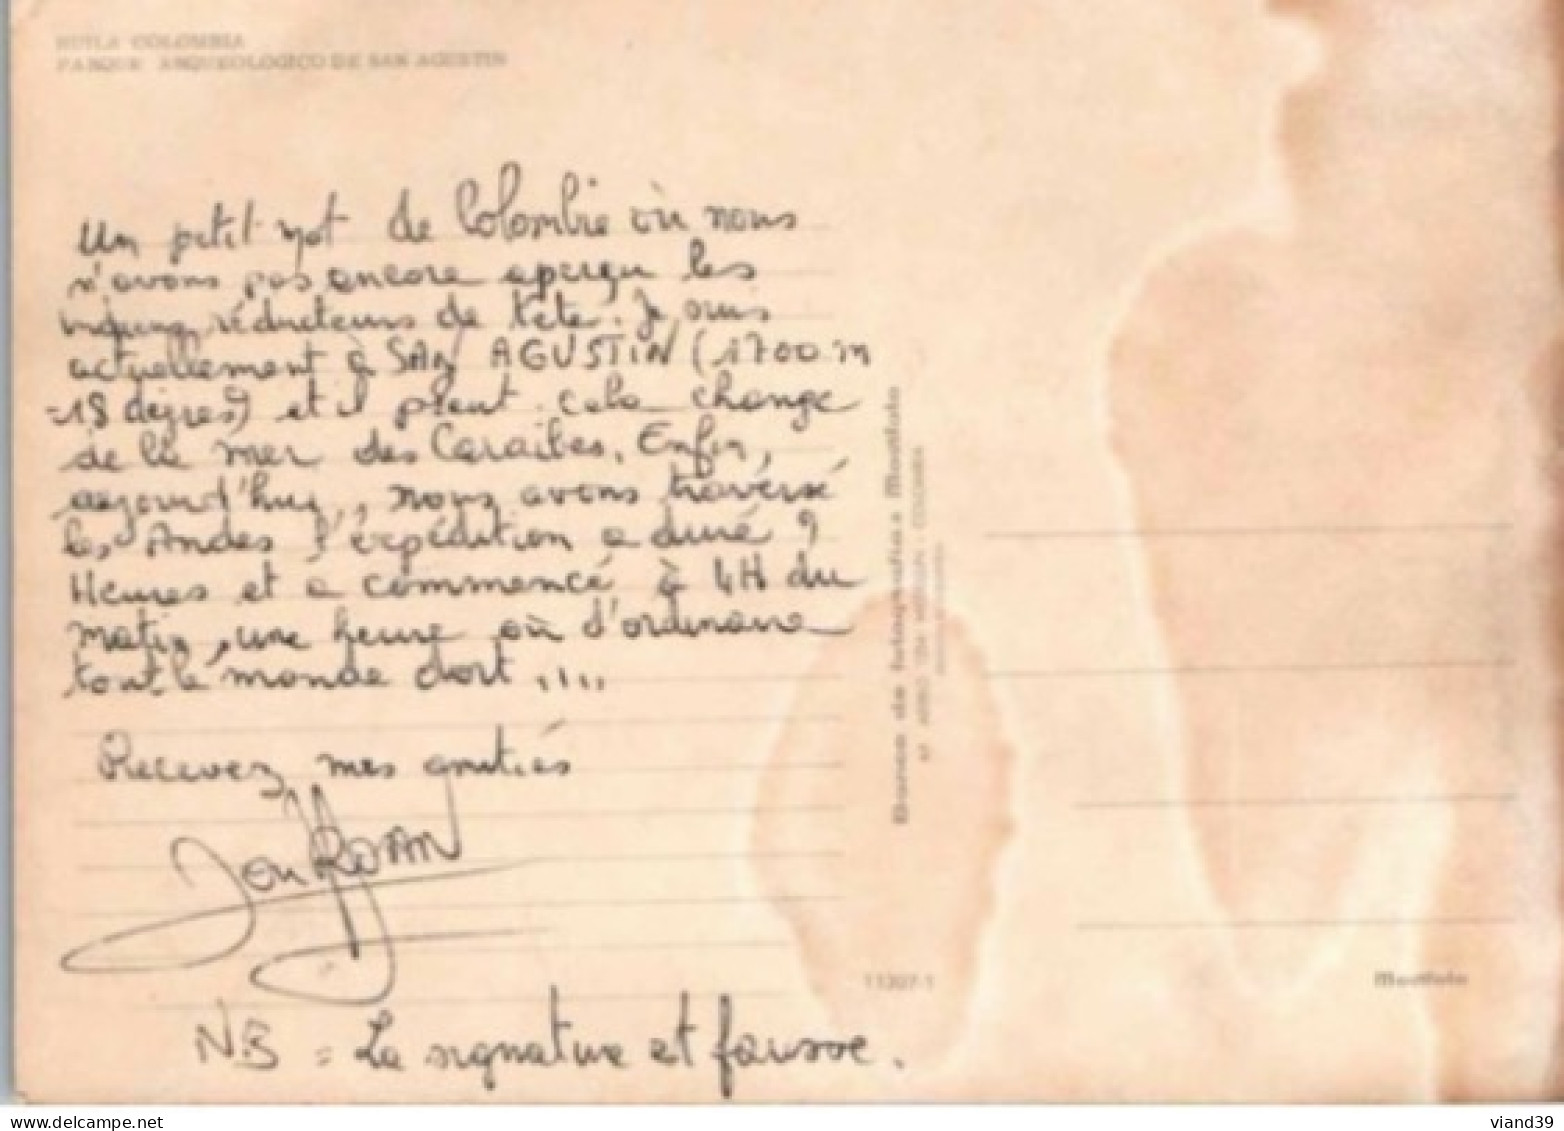 HUILA COLOMBIA
PARQUE ARQUEOLOGICO DE SAN AGUSTIN
Un petit mot de Colombie où nous
n'avons pas ancore aperçu les
réducteurs de tete. Je suis
actuellement à SAN AGUSTIN (1700 m
=18 degres) et il pleut. cela change
de la mer des Caraibes. Enfin,
aujourd'huy, nous avons traversé
les Andes l'expédition a duré 9
Heures et a commencé à 4H du
matin, une heure où d'ordinaire
tout le monde dort ....
Recevez mes amitiés
N.B = La signature et fausse.
Movifoto
11307-1
viand39